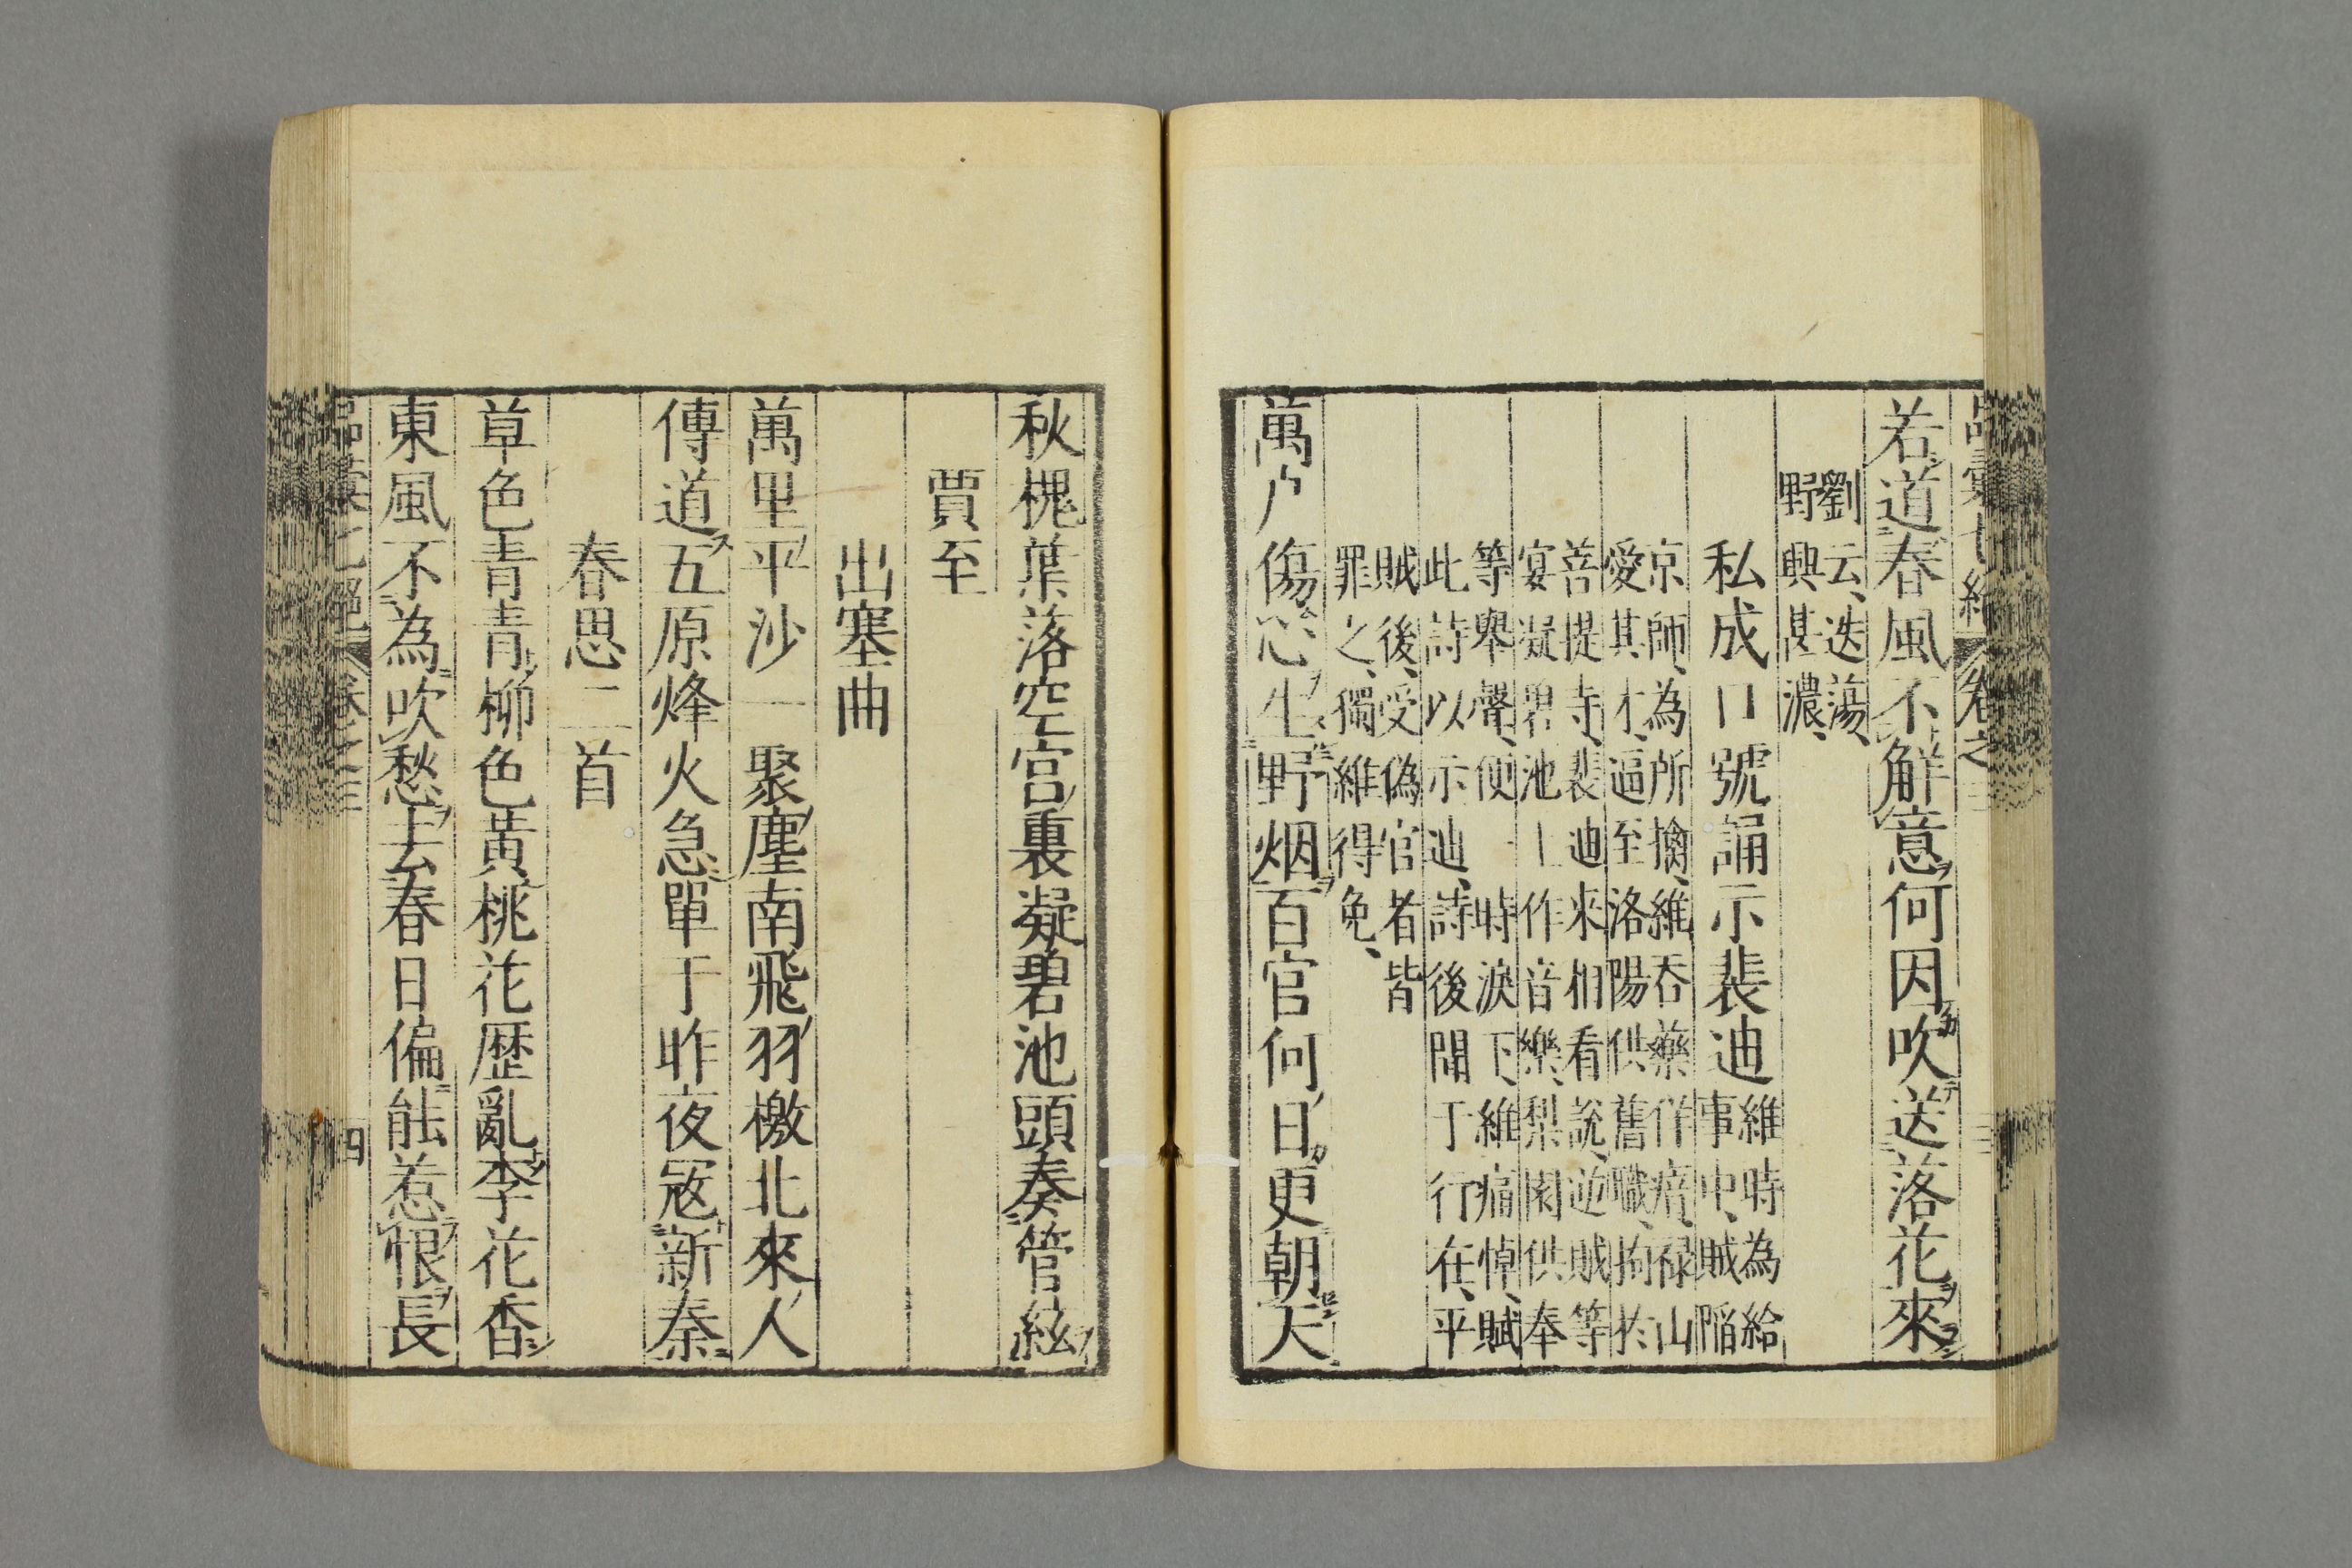 若道春風不解意何因吹送落花來
劉云、迭蕩、
野興甚濃、
私成口號誦示裴迪
維時為給
事中、賊陷
京師、為所擒、維吞藥佯瘖、祿山
愛其才、逼至洛陽供舊職、拘於
菩提寺、裴迪來相看說、逆賊等
宴凝碧池上作音樂、梨園供奉
等舉聲、便一時淚下、維痛悼、賦
此詩以示迪、詩後聞于行在、平
賊後、受偽官者皆
罪之、獨維得免、
萬户傷心生野烟百官何日更朝天
秋槐葉落空宮裏凝碧池頭奏管絃
賈至
出塞曲
萬里平沙一聚塵南飛羽檄北來人
傳道五原烽火急單于昨夜寇新秦
春思二首
草色青青柳色黃桃花歷亂李花香
東風不為吹愁去春日偏能惹恨長
四